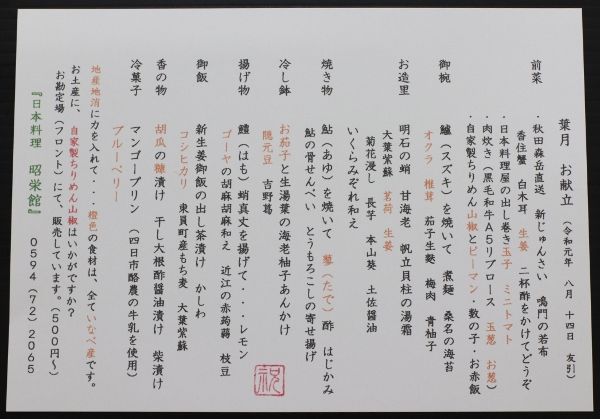 葉月 お献立 (令和元年 八月 十四日 友引)
前菜 ・秋田森岳直送 新じゅんさい 鳴門の若布
香住蟹 白木耳 生姜 二杯酢をかけてどうぞ
・日本料理屋の出し巻き玉子 ミニトマト
・肉炊き(黒毛和牛A5リブロース 玉葱 お葱)
・自家製ちりめん山椒とピーマン・数の子・お赤飯
御椀 鱸(スズキ)を焼いて 煮麺 桑名の海苔
オクラ 椎茸 茄子生麩 梅肉 青柚子
お造里 明石の蛸 甘海老 帆立貝柱の湯霜
大葉紫蘇 茗荷 生姜
菊花浸し 長芋 本山葵 土佐醤油
いくらみぞれ和え
焼き物 鮎(あゆ)を焼いて 蓼(たで)酢 はじかみ
鮎の骨せんべい とうもろこしの寄せ揚げ
冷し鉢 お茄子と生湯葉の海老柚子あんかけ
隠元豆 吉野葛
揚げ物 鱧(はも)蛸真丈を揚げて・・・レモン
ゴーヤの胡麻胡麻和え 近江の赤蒟蒻 枝豆
御飯 新生姜御飯の出し茶漬け かしわ
コシヒカリ 東員町産もち麦 大葉紫蘇
香の物 胡瓜の糠漬け 干し大根酢醤油漬け 柴漬け
冷菓子 マンゴープリン (四日市酪農の牛乳を使用)
ブルーベリー
地産地消に力を入れて・・・橙色の食材は、全ていなべ産です。
お土産に、自家製ちりめん山椒はいかがですか?
お勘定場(フロント)にて、販売しています。(500円~)
『日本料理 昭栄館』 0594(72)2065
祝